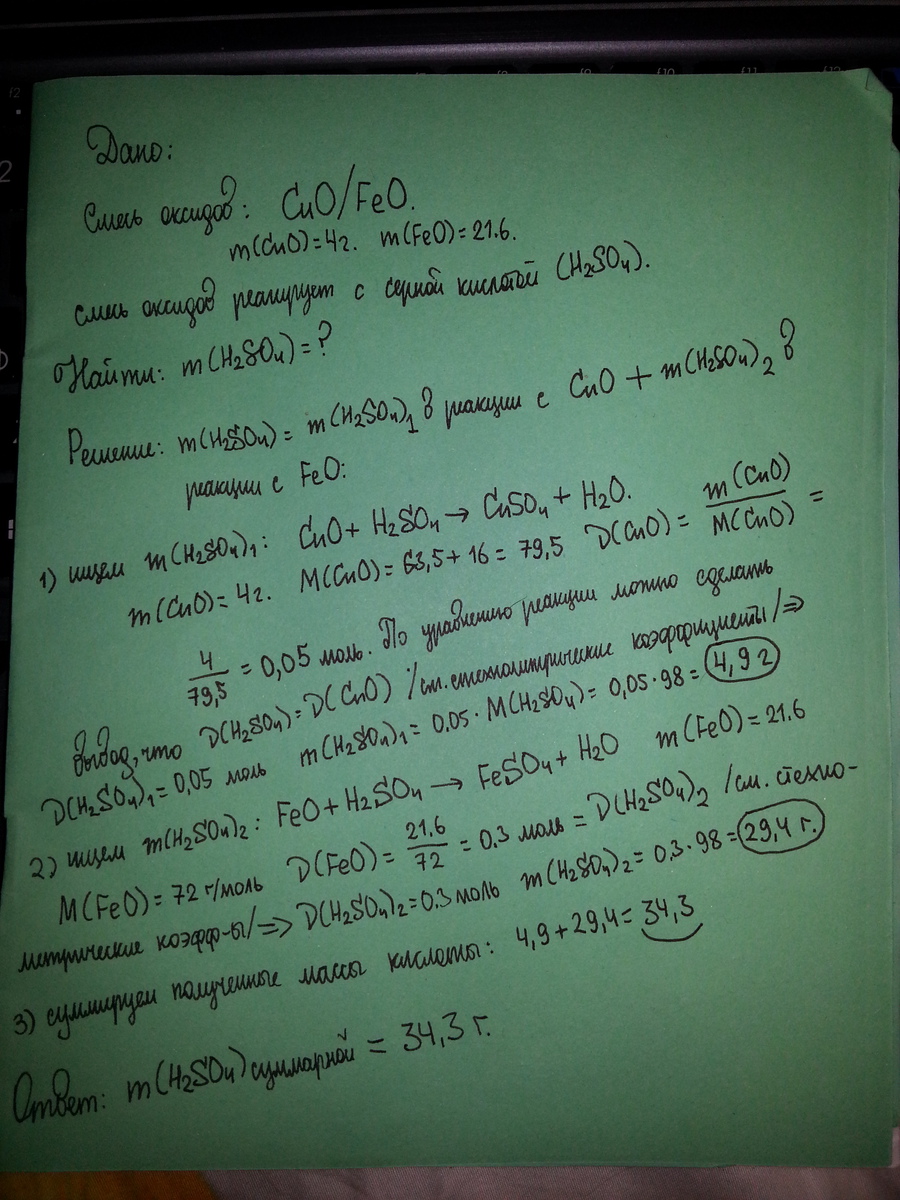 Дано:
Смесь оксидов: CuO/FeO.
m(CuO)=4г. m(FeO)=21.6.
смесь оксидов реагирует с серной кислотой (H₂SO₄).
Найти: m(H₂SO₄)=?
Решение: m(H₂SO₄)= m(H₂SO₄)₁ в реакции с CuO + m(H₂SO₄)₂ в
реакции с FeO:
1) ищем m(H₂SO₄)₁: CuO+ H₂SO₄ → CuSO₄ + H₂O.
m(CuO)= 4г. M(CuO)= 63,5+ 16 = 79,5 D(CuO)= m(CuO)/M(CuO) =
4/79,5 = 0,05 моль. По уравнению реакции можно сделать
вывод, что D(H₂SO₄)=D(CuO) /см. стехиометрические коэффициенты/⇒
D(H₂SO₄)₁=0,05 моль m(H₂SO₄)₁= 0,05· M(H₂SO₄)= 0,05·98= 4,9 г
2) ищем m(H₂SO₄)₂: FeO+H₂SO₄ → FeSO₄+ H₂O m(FeO)=21.6
M(FeO)= 72 г/моль D(FeO)= 21.6/72 = 0.3 моль = D(H₂SO₄)₂ /см. стехио-
метрические коэфф-ы/⇒ D(H₂SO₄)₂=0.3 моль m(H₂SO₄)₂= 0.3·98= 29,4 г.
3) суммируем полученные массы кислоты: 4,9+29,4= 34,3
Ответ: m(H₂SO₄) суммарной = 34,3 г.